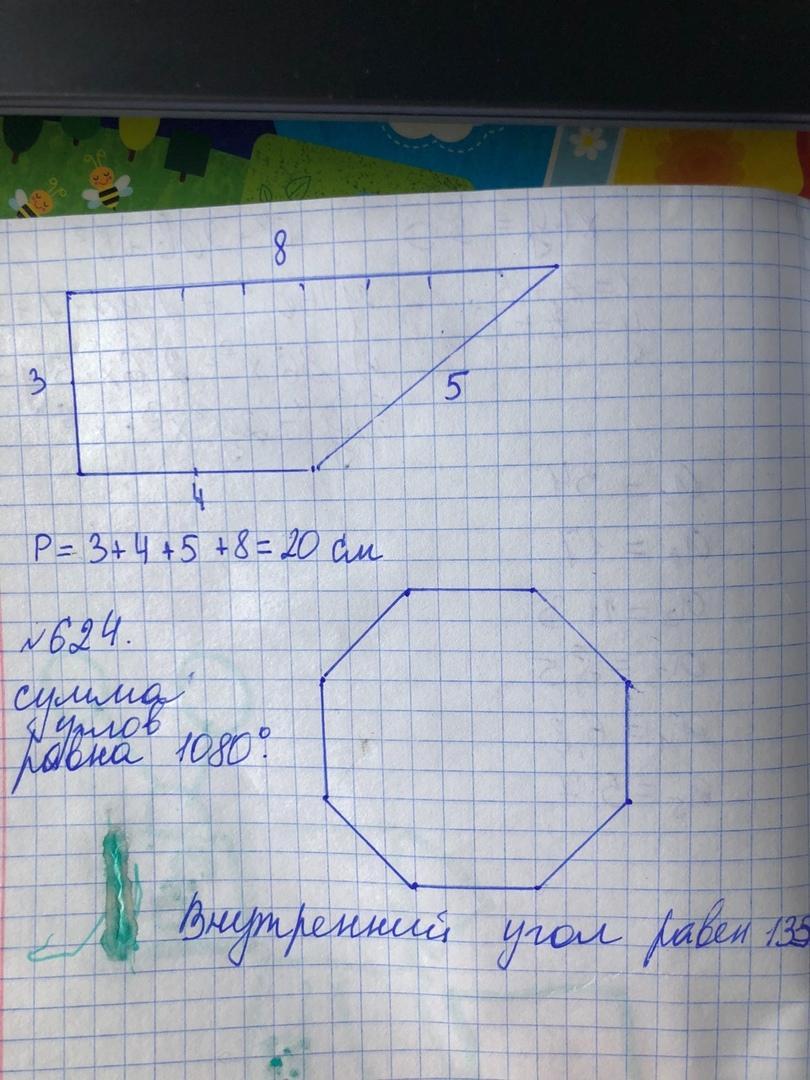 8
3
5
4
P = 3+4+5+8 = 20 см
№624.
сумма
углов
равна 1080°.
Внутренний угол равен 135